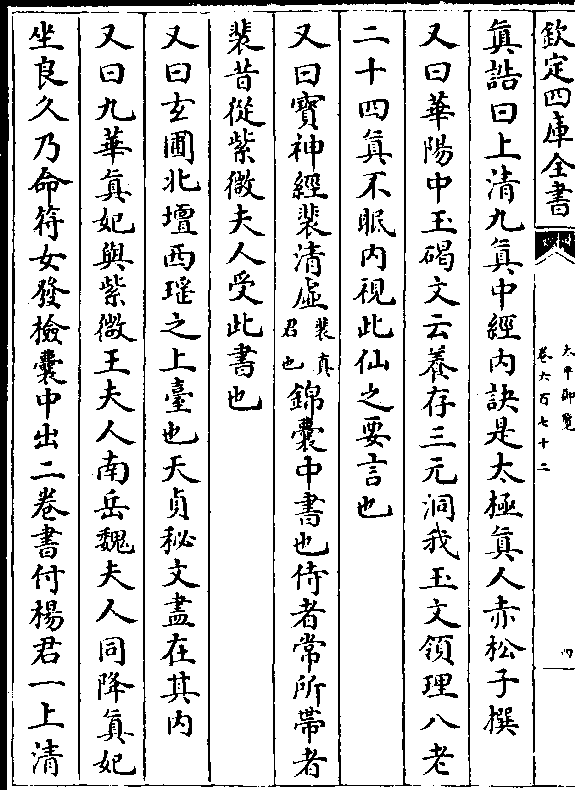 欽定四庫全書
太平御覽
卷六百七十二
四
眞誥曰上清九眞中經内訣是太極眞人赤松子撰
又曰華陽中玉碣文云養存三元洞我玉文領理八老
二十四眞不眠内視此仙之要言也
又曰寶神經裴清虚裴真君也錦囊中書也侍者常所帶者
裴昔從紫微夫人受此書也
又曰玄圃北壇西瑤之上臺也天貞秘文盡在其内
又曰九華眞妃與紫微王夫人南岳魏夫人同降眞妃
坐良久乃命符女發檢囊中出二卷書付楊君一上清